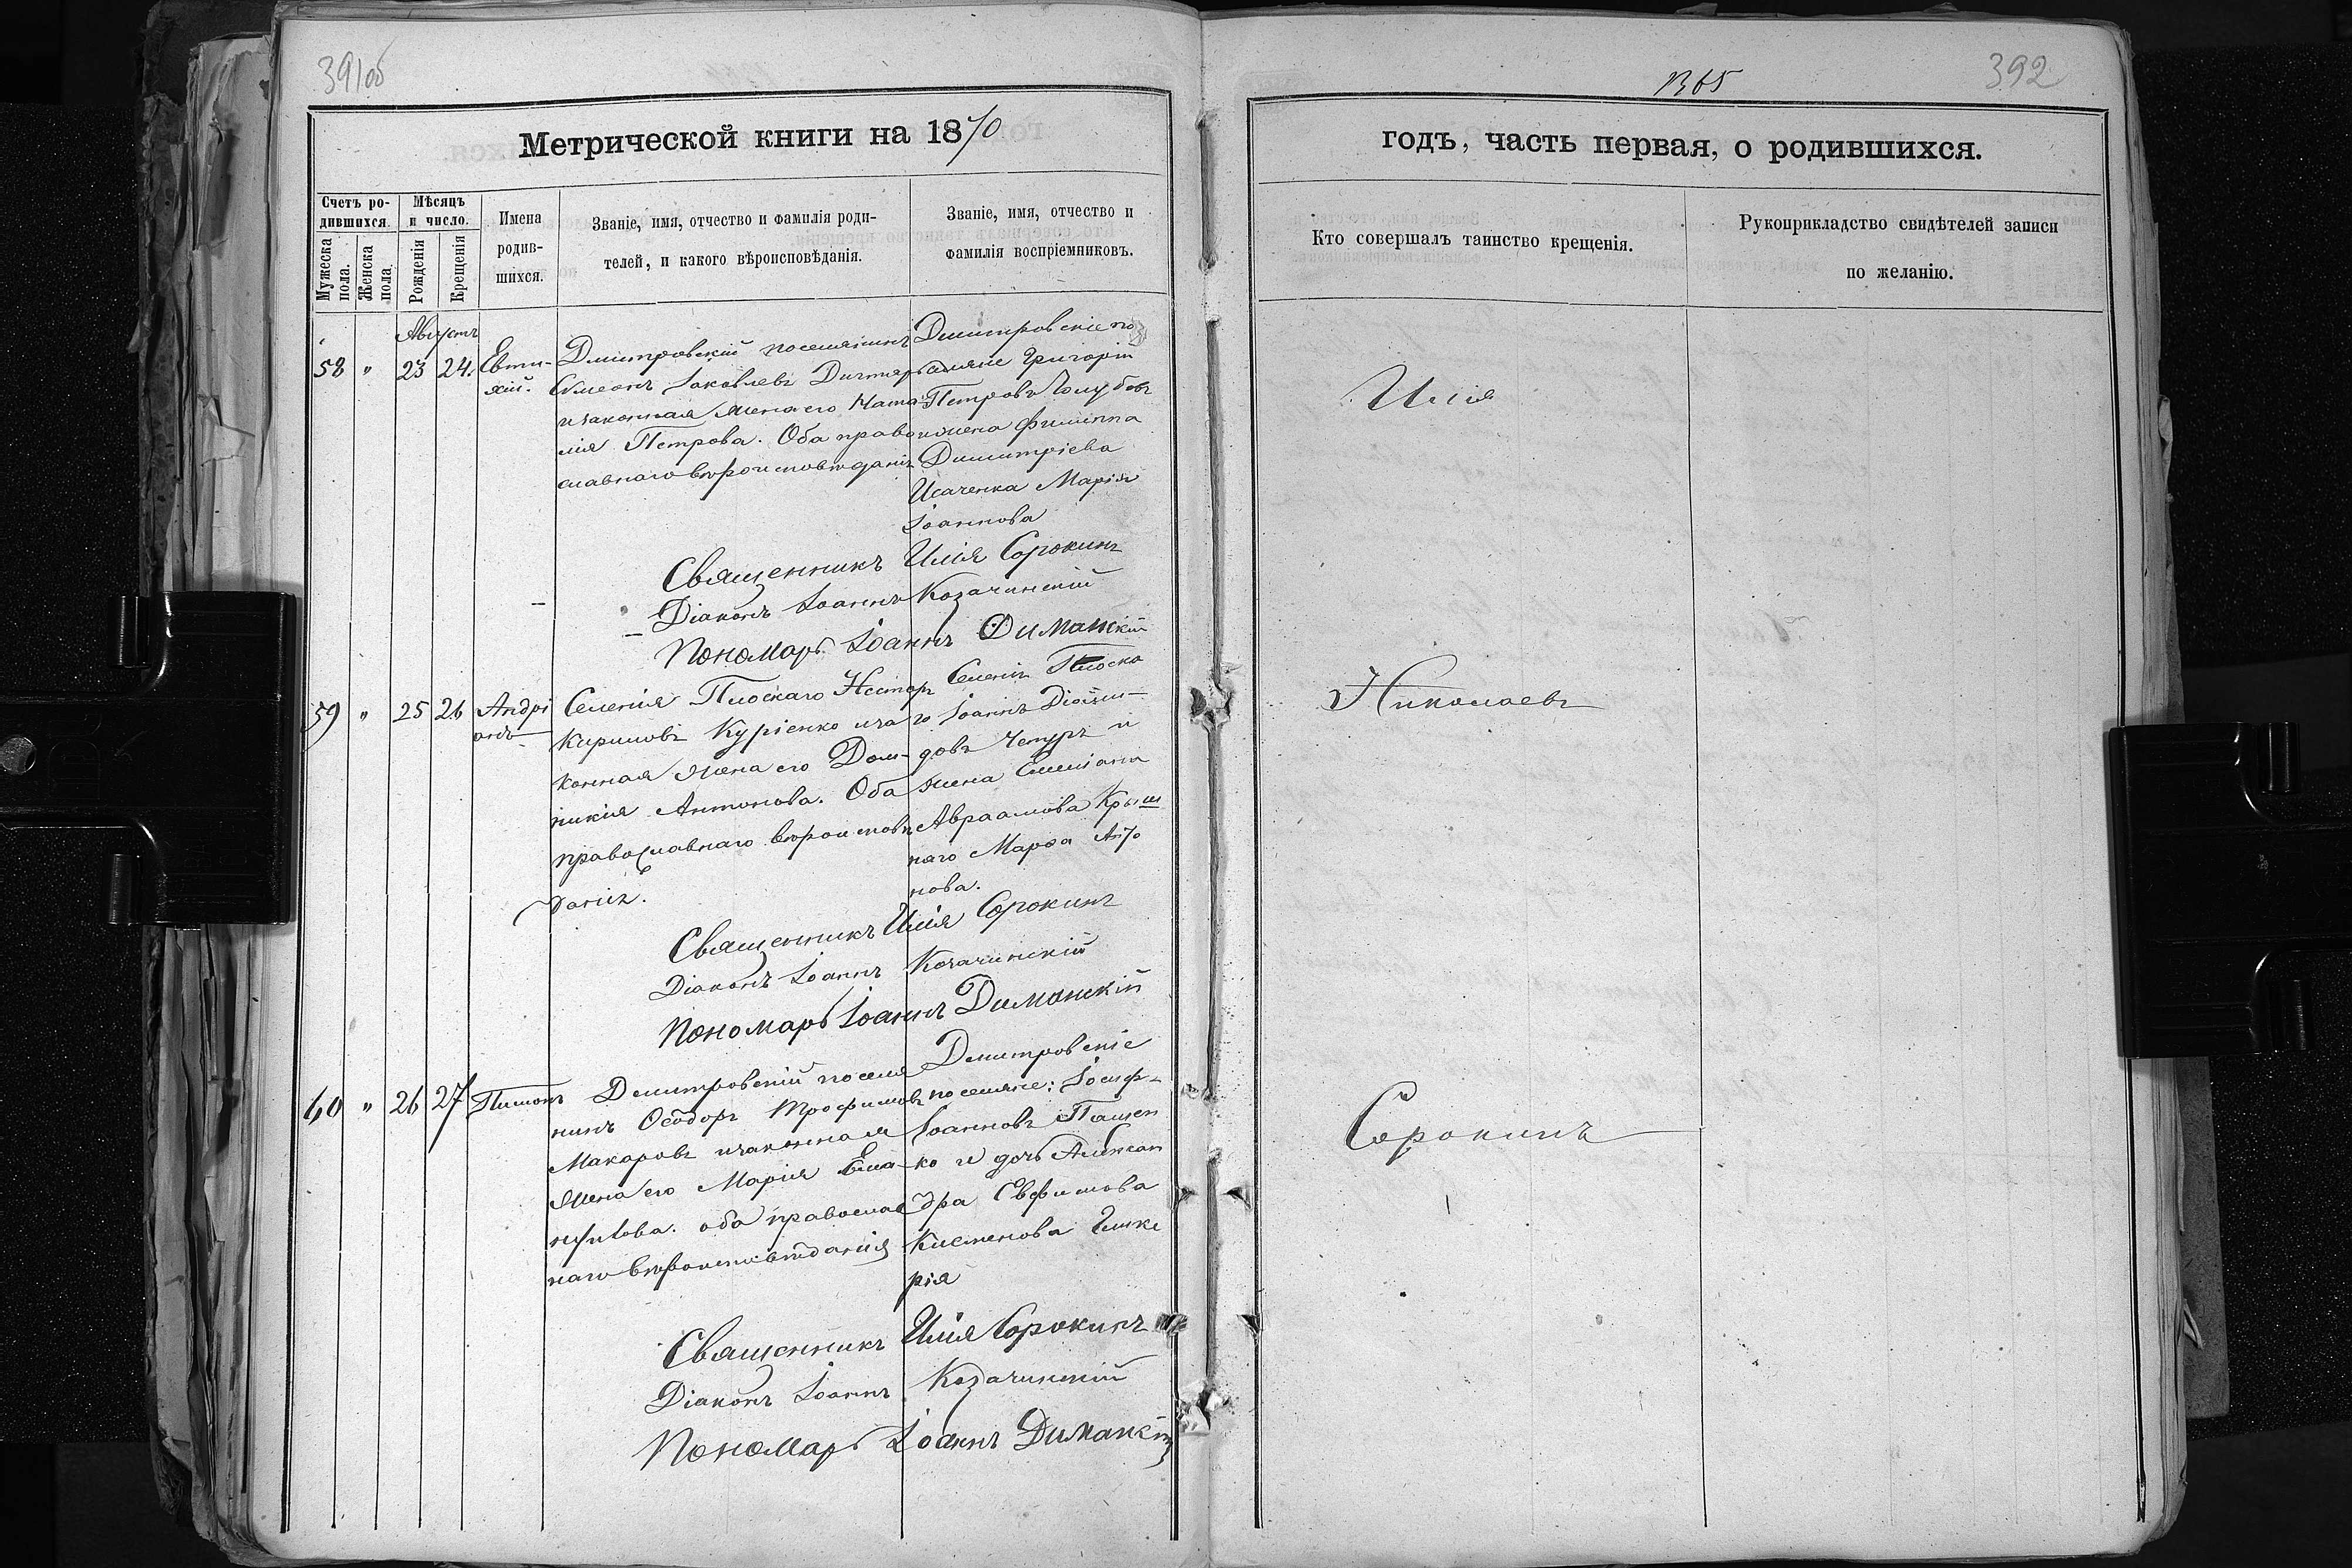 391об
Метрической книги на 1870
Счетъ ро-
дившихся.
Мужеска пола.
Женска пола.
Мѣсяцъ
и число.
Рожденія
Крещенія
Имена
родив-
шихся.
Званіе, имя, отчество и фамилія роди-
телей, и какого вѣроисповѣданія.
Званіе, имя, отчество и
фамилія воспріемниковъ.
Августъ
58 " 23 24. Евти-
хій.
Дмитровскій поселянинъ
Симеонъ Іаковлевъ Дихтяръ
и законная жена его Ната
лія Петрова. Оба право
славнаго вѣроисповѣданія
Дмитровскіе по
селяне Григорій
Петровъ Голубовъ
и жена Филиппа
Димитріева
Исаченка Марія
Іоаннова
Священникъ Илія Сорокинъ
Діаконъ Іоаннъ Козачинскій
Пономарь Іоаннъ Диманскій
59 " 25 26 Андрі
анъ
Селенія Плоскаго Несторъ
Кириловъ Куріенко и за
конная жена его Дом-
никія Антонова. Оба
православнаго вѣроисповѣ
данія.
Селенія Плоска
го Іоаннъ Діоми-
довъ Чепуръ и
жена Емеліана
Авраамова Крыш
наго Марѳа Анто
нова.
Священникъ Илія Сорокинъ
Діаконъ Іоаннъ Козачинскій
Пономарь Іоаннъ Диманскій
60 " 26 27 Пимонъ
Дмитровскій поселя
нинъ Ѳеодоръ Трофимовъ
Макаровъ и законная
жена его Марія
оба православ
наго вѣроисповѣданія
Дмитровскіе
поселяне: Іосифъ
Іоанновъ Пащен
ко и дочь Алексан
дра Евфимова
Клеменова Глике
рія
Священникъ Илія Сорокинъ
Діаконъ Іоаннъ Козачинскій
Пономарь Іоаннъ Диманскій
1365
392
годъ, часть первая, о родившихся.
Кто совершалъ таинство крещенія.
Рукоприкладство свидѣтелей записи
по желанію.
Илія
Николаевъ
Сорокинъ